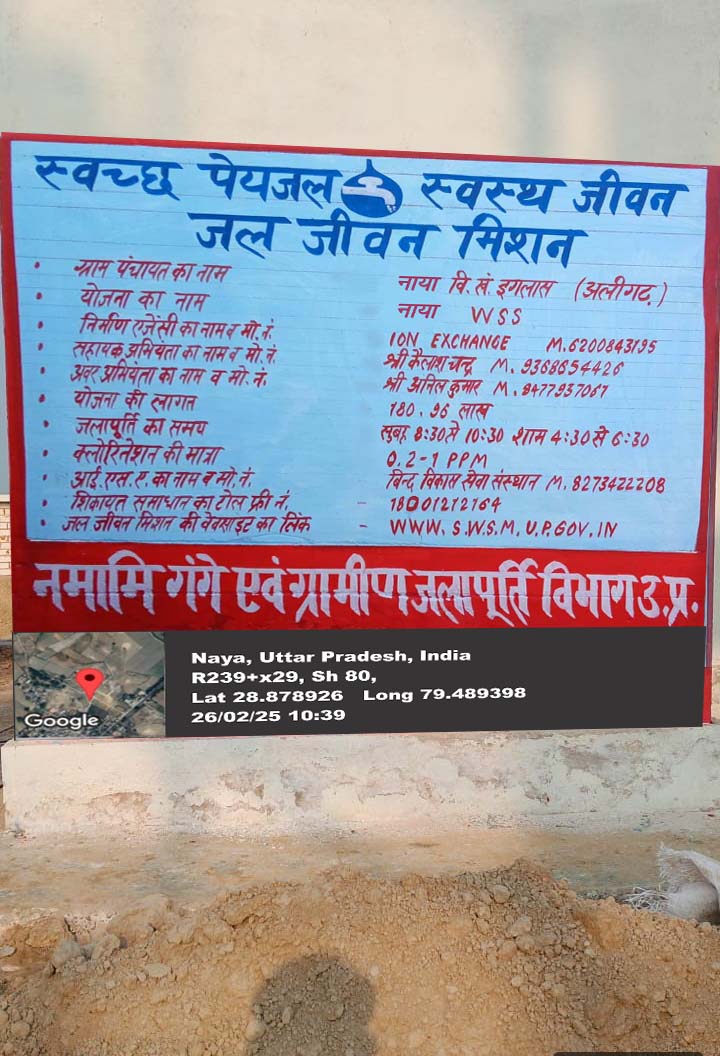 स्वच्छ पेयजल स्वस्थ जीवन
जल जीवन मिशन
• ग्राम पंचायत का नाम नाया वि. खं. इगलास (अलीगढ़)
• योजना का नाम नाया WSS
• निर्माण एजेंसी का नाम व मो. नं. ION EXCHANGE M. 6200843195
• सहायक अभियंता का नाम व मो. नं. श्री कैलाश चन्द्र M. 9368654426
• अवर अभियंता का नाम व मो. नं. श्री अनिल कुमार M. 8477937067
• योजना की लागत 180.96 लाख
• जलापूर्ति का समय सुबह 8:30 से 10:30 शाम 4:30 से 6:30
• क्लोरिनेशन की मात्रा 0.2-1 PPM
• आई. एस. ए. का नाम व मो. नं. बिन्द विकास सेवा संस्थान M. 8273422208
• शिकायत समाधान का टोल फ्री नं. - 18001212164
• जल जीवन मिशन की वेबसाइट का लिंक - WWW.S.W.S.M.U.P.GOV.IN
नमामि गंगे एवं ग्रामीण जलापूर्ति विभाग उ.प्र.
Naya, Uttar Pradesh, India
R239+x29, Sh 80,
Lat 28.878926 Long 79.489398
26/02/25 10:39
Google